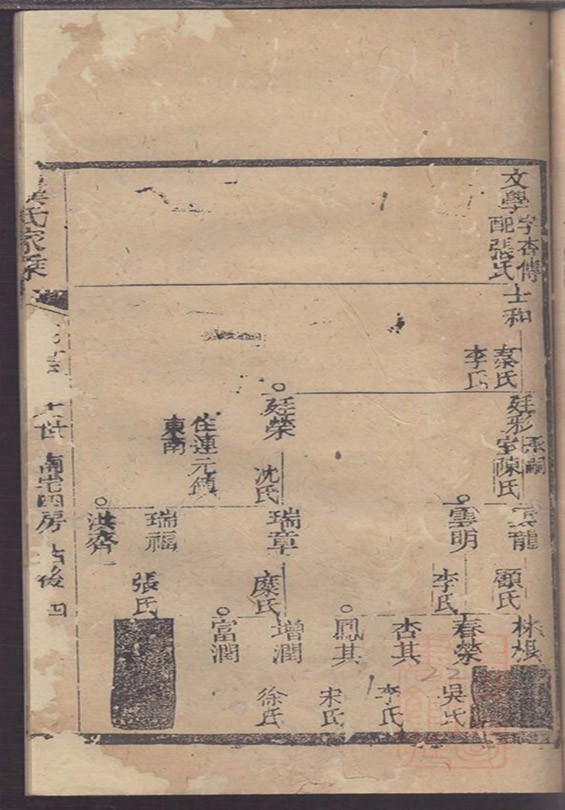 文學
字杏傳
配張氏
士和
秦氏
李氏
廷彩
室陳氏
廷榮
沈氏
住連元鎮
東南
雲龍
顧氏
雲明
李氏
瑞章
糜氏
瑞福
張氏
洪齊
林棋
春榮
吳氏
杏其
李氏
鳳其
宋氏
增潤
徐氏
富潤
氏家乘
世
南宅四房
后後四